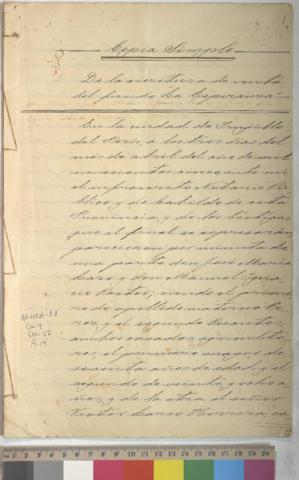 Copia Simple
De la escritura de venta
del fundo La Esperanza
En la ciudad de Trujillo
del Perú, a los tres días del
mes de abril del año de mil
novecientos cincuenta mí
el infrascrito Notario Pú-
blico, y de Cabildo de esta
Provincia, y de los testigos
que al final se expresarán
parecieron por minuta de
una parte don José María
y don Manuel Igna-
cio siendo el prime-
ro de apellido materno
y el segundo
ambos casados, agriculto-
res, el primero mayor de
sesenta años de edad, y el
segundo de veinte y ocho a-
ños, y de la otra el señor
Víctor Larco Herrera, ca
AFHRA-
Doc. 22
1
1 2 3 4 5 6 7 8 9 10 11 12 13 14 15 16 17 18 19 20